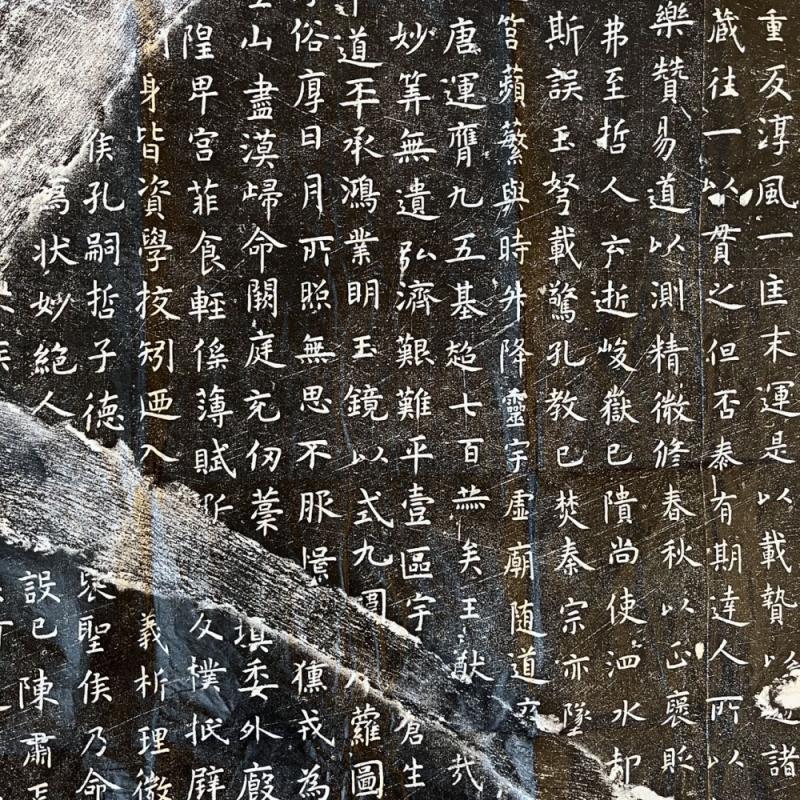 重反淳風一匡末運是以載贄以諸
藏往一以貫之但否泰有期達人所以
樂贊易道以測精微修春秋以正褒貶
弗至哲人云逝峻嶽已隤尚使泗水却
斯誤玉弩載驚孔教已焚秦宗亦墜
筥蘋蘩與時升降靈宇虛廟隨道
唐運膺九五基超七百赫矣王猷哉
妙筭無遺弘濟艱難平壹區宇蒼生
道丕承鴻業明玉鏡以式九蘿圖
俗厚日月所照無思不服憬獯戎為
山盡漠歸命闕庭充仞藁填委外廄
隍卑宮菲食輕徭薄賦斲反樸抵璧
身皆資學校矧迺入義析理微
侯孔嗣哲子德褎聖侯乃命
為狀妙絕人設已陳肅